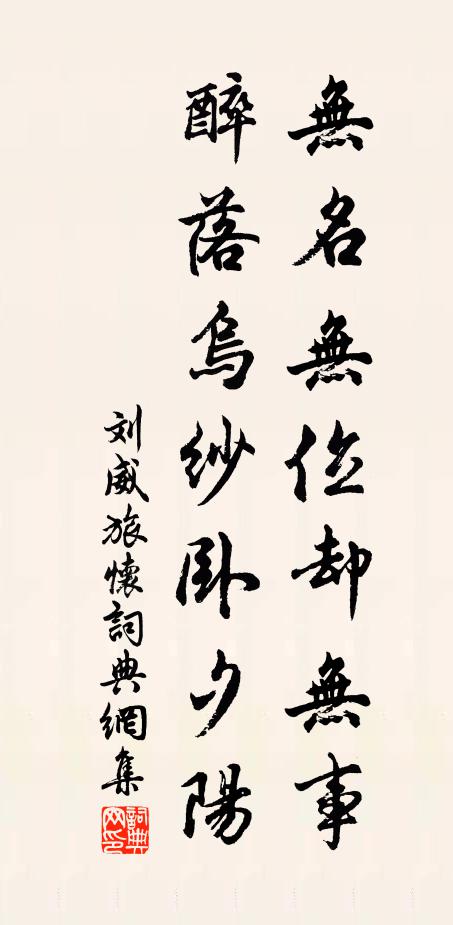 無名無位却無事
醉落烏紗卧夕陽
刘威旅懷詞典網集
詞典网印